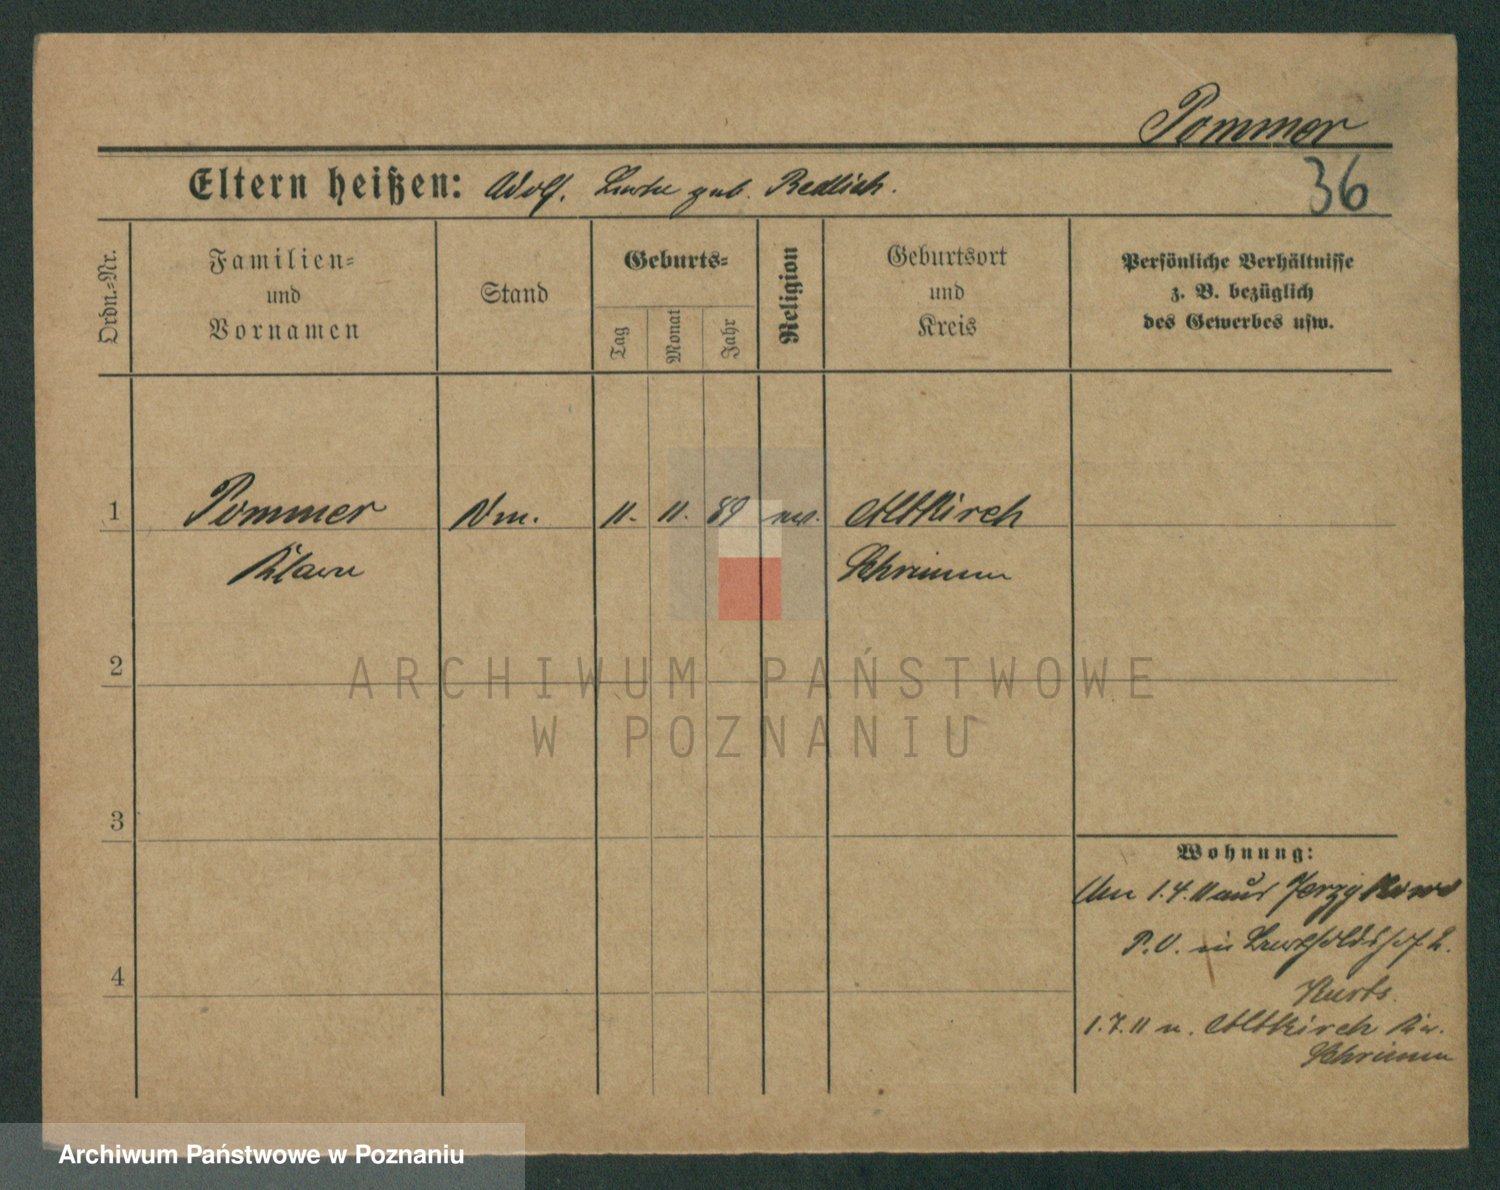 Pommer
Eltern heißen: Adolf. geb. Redlich.
36
Ordn.-Nr.
Familien-
und
Vornamen
Stand
Geburts-
Tag
Monat
Jahr
Religion
Geburtsort
und
Kreis
Persönliche Verhältnisse
z. B. bezüglich
des Gewerbes usw.
1 Pommer 11. 11. 89 Altkirch
Klara Schrimm
2
3
4
ARCHIWUM PAŃSTWOWE
W POZNANIU
Wohnung:
1.4.11 aus
P.O. in
Kurts.
1.7.11 n. Altkirch
Schrimm
Archiwum Państwowe w Poznaniu